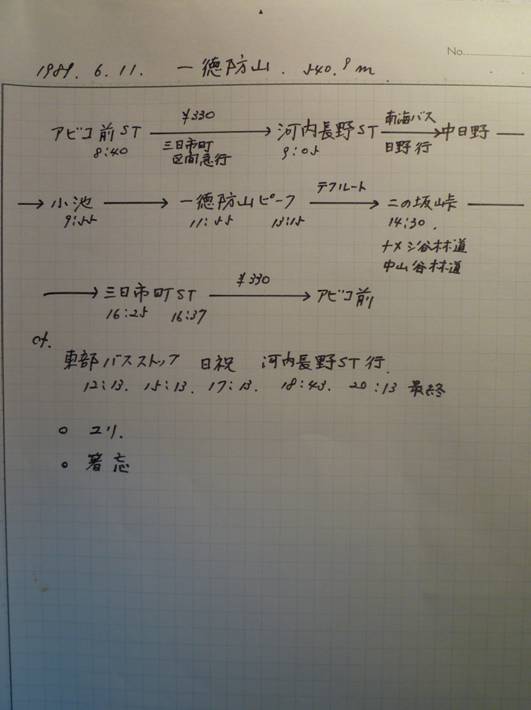 No.
1989. 6. 11. 一徳防山. 540.9m
¥330 南海バス
アビコ前ST → 河内長野ST → 中日野 —
8:40 三日市町 9:05 日野行
区間急行
テフルート
→ 小池 → 一徳防山ピーク → 二の坂峠 —
9:55 11:55 13:15 14:30.
ナメシ谷林道
中山谷林道
¥330
→ 三日市町ST → アビコ前
16:25 16:37
cf.
東部バスストップ 日祝 河内長野ST行.
12:13. 15:13. 17:13. 18:43. 20:13 最終
○ ユリ.
○ 箸忘